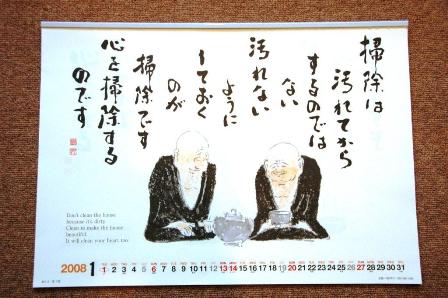 掃除は
汚れてから
するのでは
ない
汚れない
ように
しておく
のが
掃除です
心を掃除する
のです
Don't clean the house
because it's dirty.
Clean to make the house
beautiful.
It will clean your heart, too.
2008 1 1 2 3 4 5 6 7 8 9 10 11 12 13 14 15 16 17 18 19 20 21 22 23 24 25 26 27 28 29 30 31